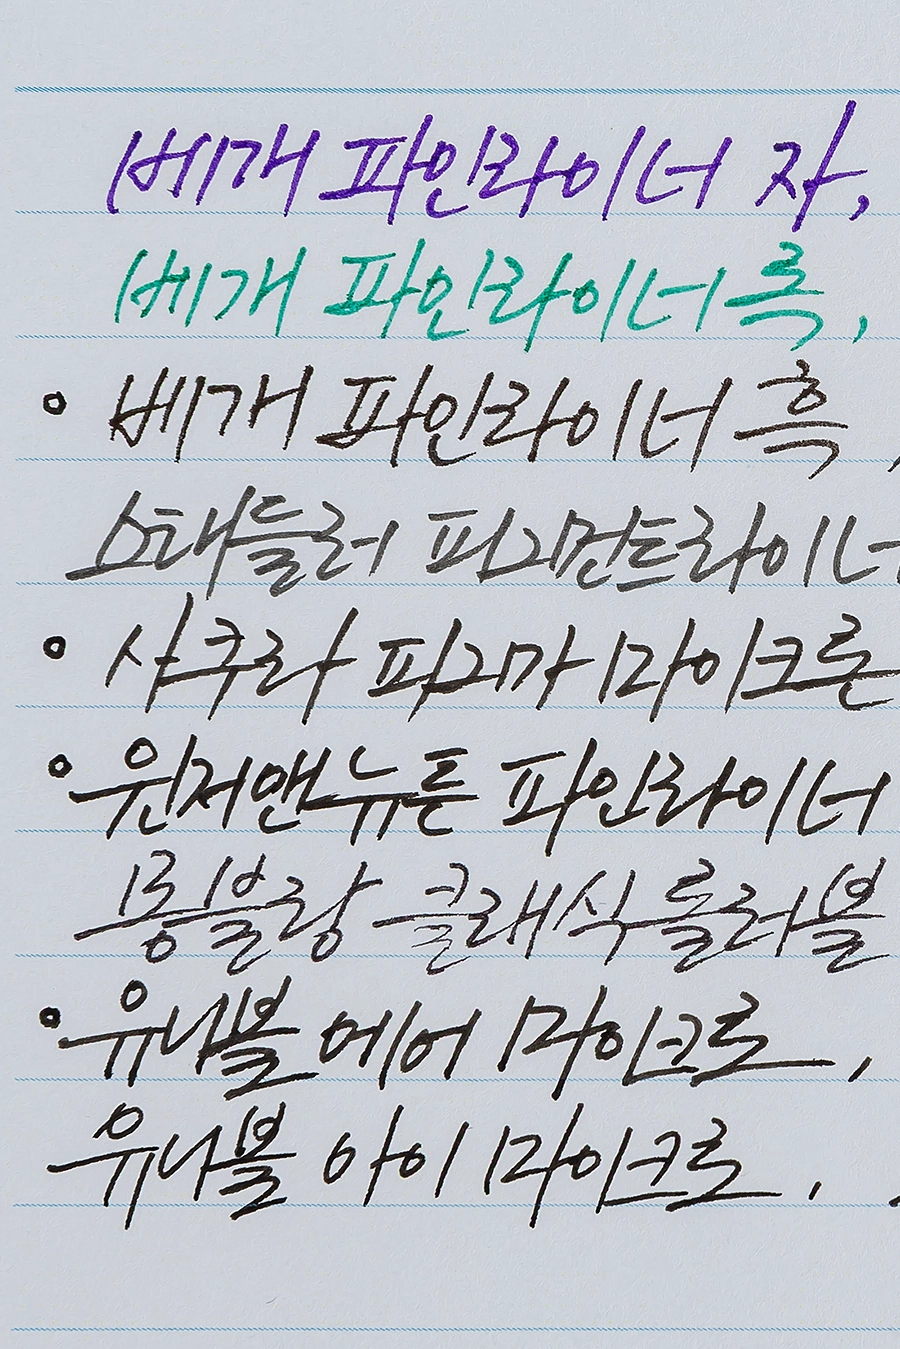 베개 파인라이너 자,
베개 파인라이너 록,
• 베개 파인라이너 흑,
스태들러 피그먼트라이너
• 사쿠라 피그마 마이크론
• 윈저앤뉴튼 파인라이너
몽블랑 클래식 롤러볼
• 유니볼 에어 마이크로,
유니볼 아이 마이크로,